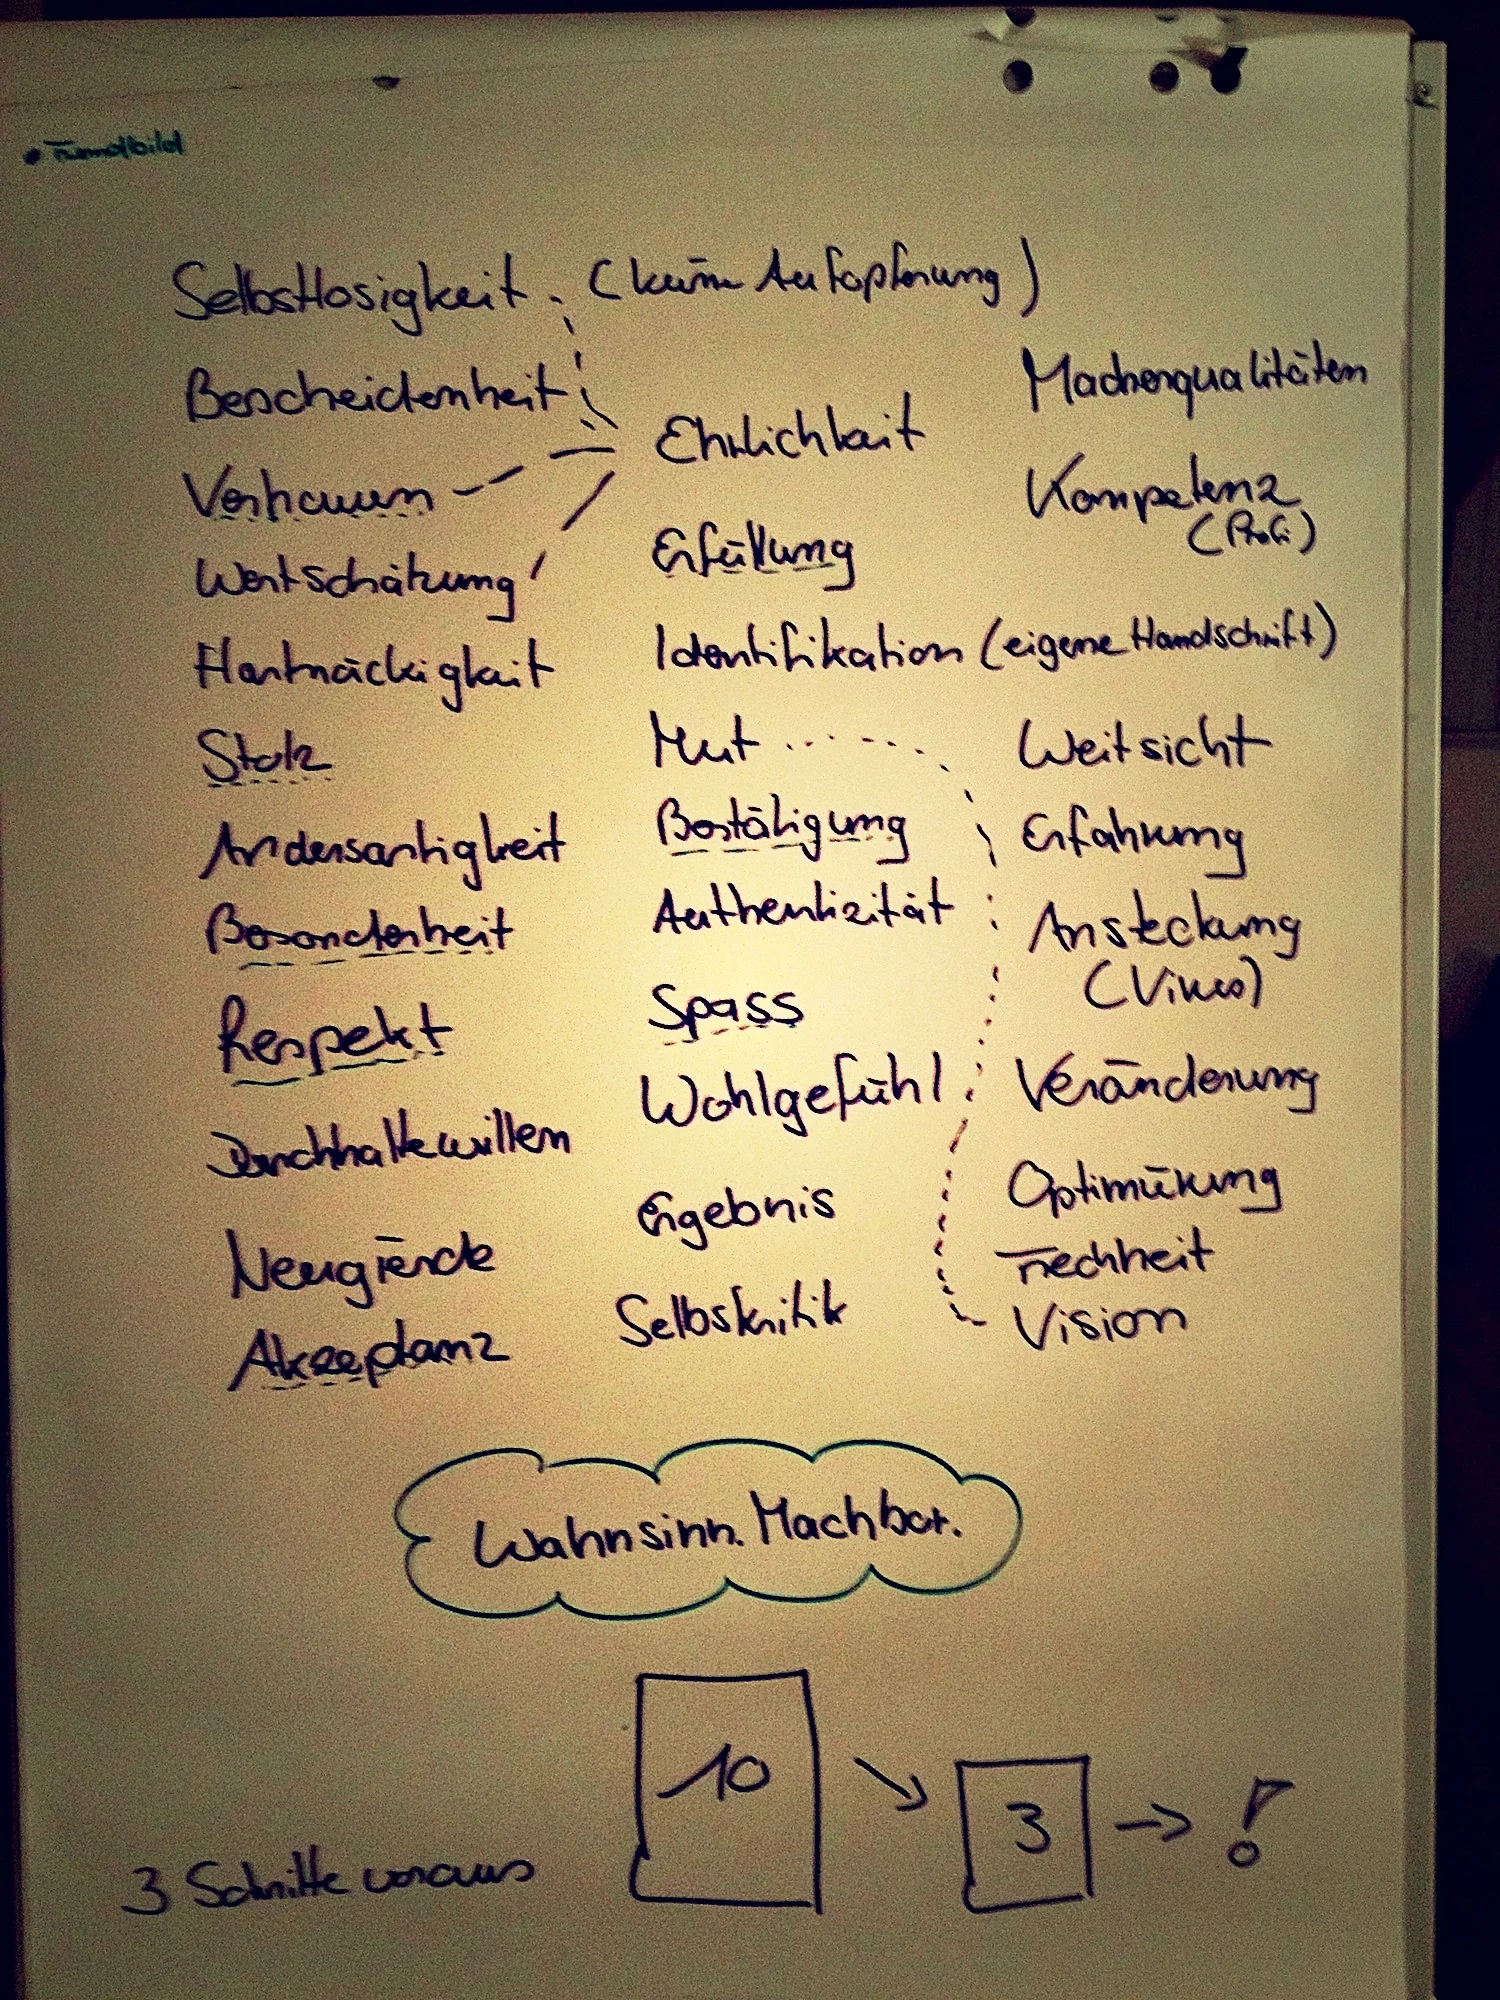 Selbstlosigkeit (keine Aufopferung)
Bescheidenheit
Vertrauen
Wertschätzung
Hartnäckigkeit
Stolz
Andersartigkeit
Besonderheit
Respekt
Durchhaltewillen
Neugierde
Akzeptanz
Ehrlichkeit
Erfüllung
Identifikation (eigene Handschrift)
Mut
Bestätigung
Authentizität
Spass
Wohlgefühl
Ergebnis
Selbstkritik
Macherqualitäten
Kompetenz
(Profi)
Weitsicht
Erfahrung
Ansteckung
(Virus)
Veränderung
Optimierung
Frechheit
Vision
Wahnsinn. Machbar.
10 3 !
3 Schritte voraus